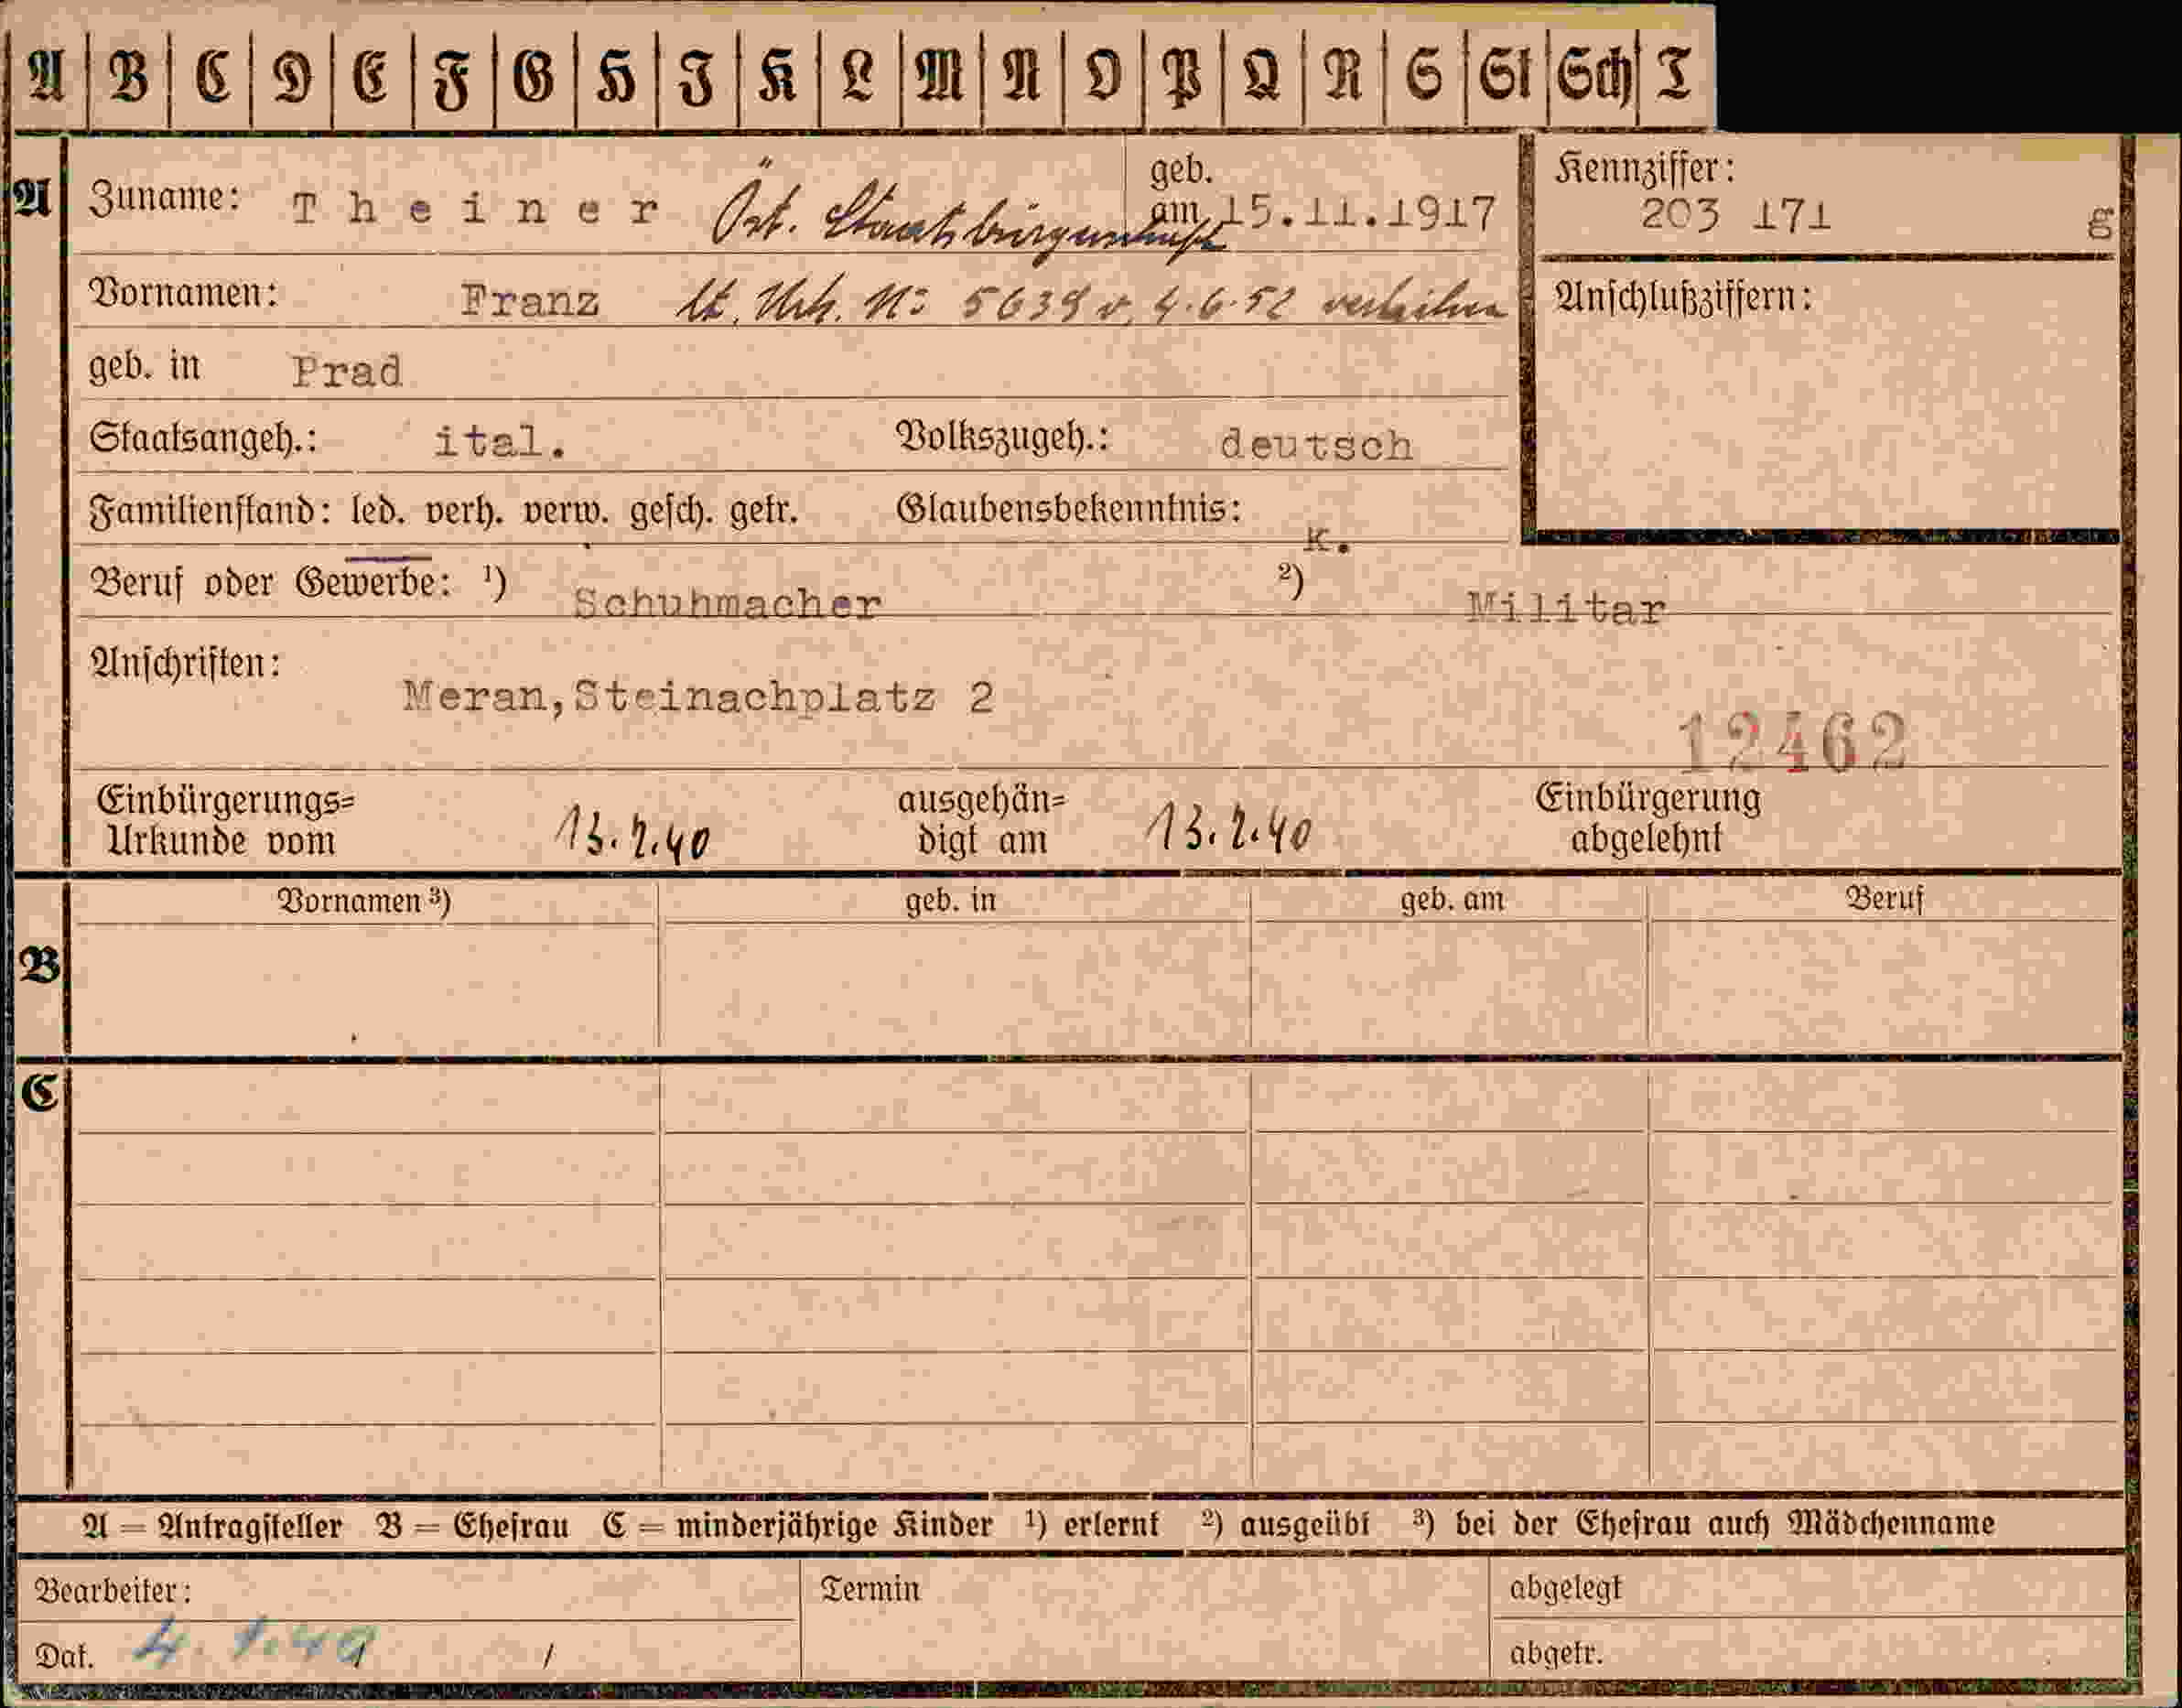 A B C D E F G H I K L M N O P Q R S St Sch T
A Zuname: Theiner Öst. Staatsbürgerschaft geb. am 15.11.1917 Kennziffer: 203 171 g
Vornamen: Franz lt. Urk. No 5639 v. 4.6.52 verliehen Anschlußziffern:
geb. in Prad
Staatsangeh.: ital. Volkszugeh.: deutsch
Familienstand: led. verh. verw. gesch. getr. Glaubensbekenntnis: K.
Beruf oder Gewerbe: ¹) Schuhmacher ²) Militar
Anschriften: Meran, Steinachplatz 2
12462
Einbürgerungs= ausgehän= Einbürgerung
Urkunde vom 13.2.40 digt am 13.2.40 abgelehnt
Vornamen ³) geb. in geb. am Beruf
B
C
A = Antragsteller B = Ehefrau C = minderjährige Kinder ¹) erlernt ²) ausgeübt ³) bei der Ehefrau auch Mädchenname
Bearbeiter: Termin abgelegt
Dat. / / abgetr.